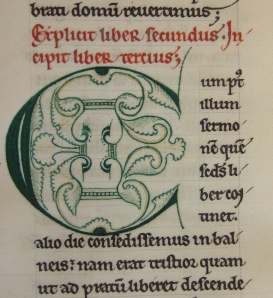 brati domū revertimus;
Explicit liber secundus. In
cipit liber tercius;
C um pꝰt
illum
sermo
nē quē
scd̄s li
ber cō
tinet.
alio die consedissemus in bal
neis: nam erat tristior quam
ut ad pratū liberet descende